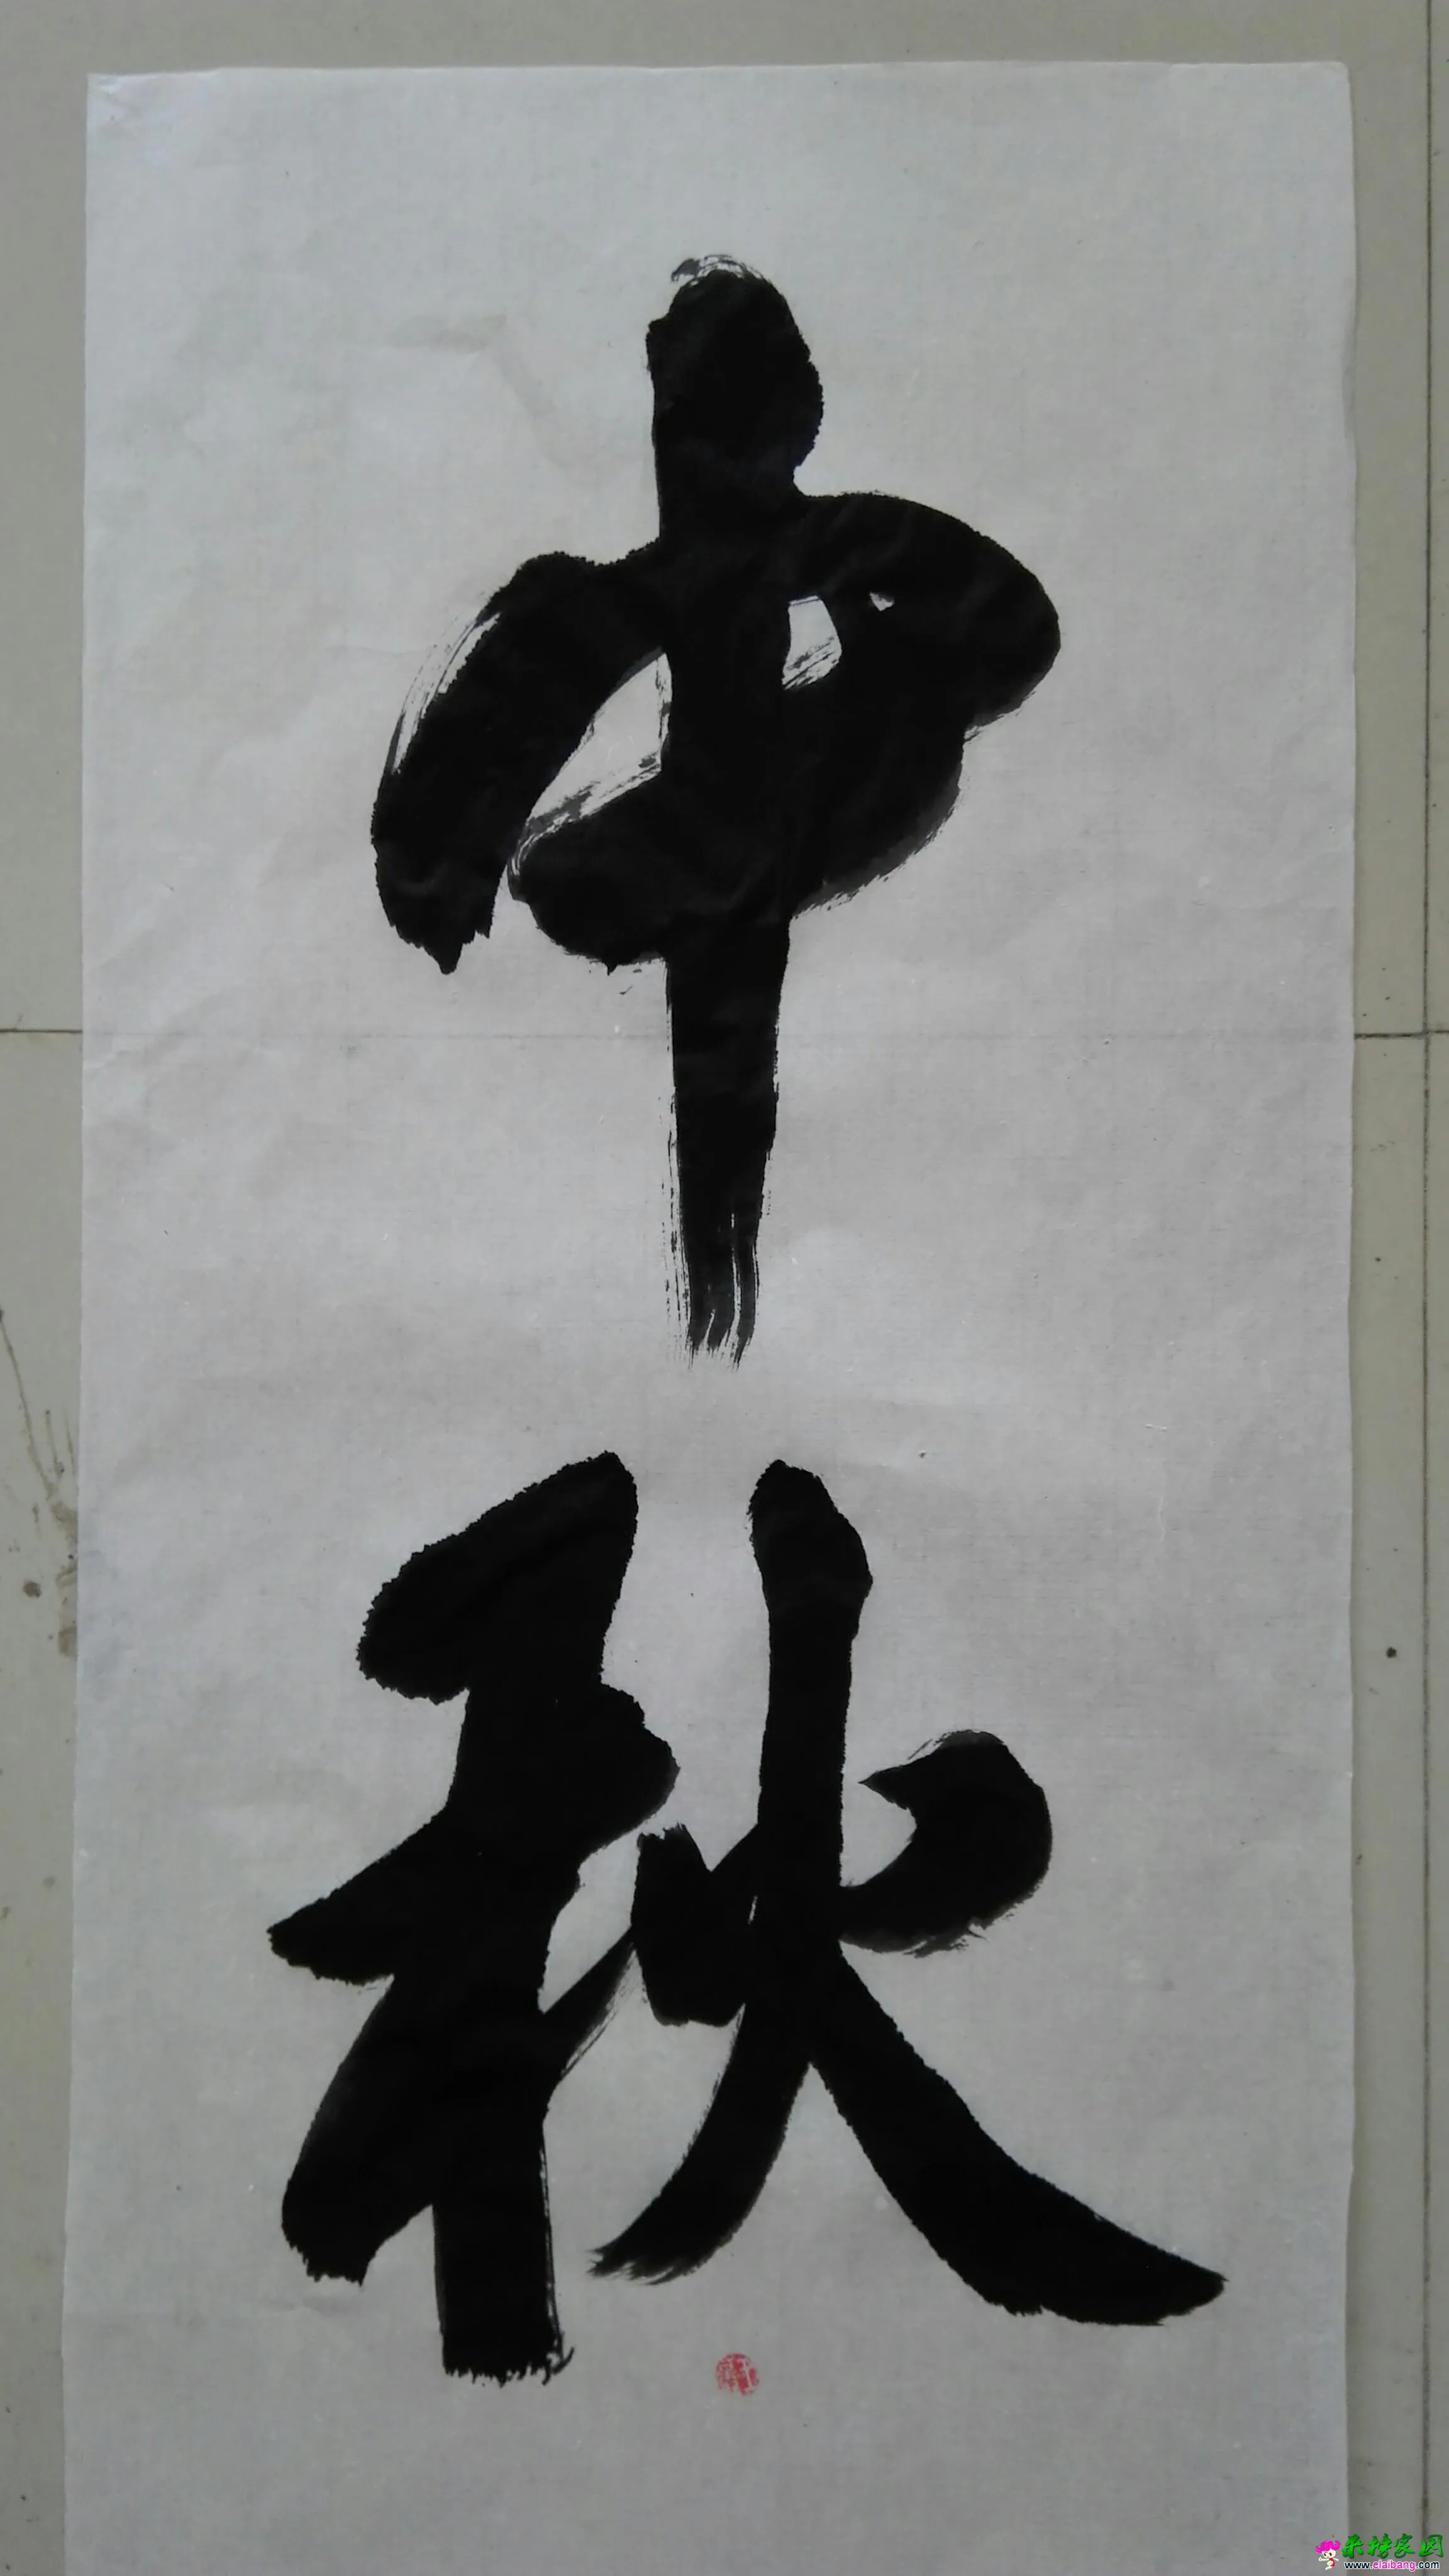 中秋
来榜家园
www.elaibang.com